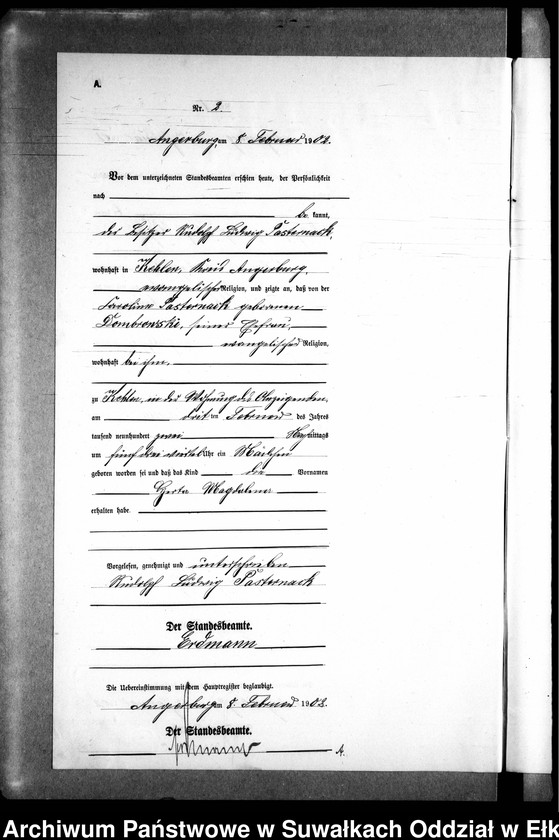 A.
Nr. 2.
Angerburg am 8. Februar 1902.
Vor dem unterzeichneten Standesbeamten erschien heute, der Persönlichkeit
nach
be kannt,
der Besitzer Rudolf Ludwig Pasternack,
wohnhaft in Kehlen, Kreis Angerburg,
evangelischer Religion, und zeigte an, daß von der
Karoline Pasternack geborenen
Dombrowski, seiner Ehefrau,
evangelischer Religion,
wohnhaft bei ihm,
zu Kehlen, in der Wohnung des Anzeigenden,
am dritten Februar des Jahres
tausend neunhundert zwei Nachmittags
um fünf drei viertel Uhr ein Mädchen
geboren worden sei und daß das Kind die Vornamen
Herta Magdalena
erhalten habe.
Vorgelesen, genehmigt und unterschrieben
Rudolf Ludwig Pasternack
Der Standesbeamte.
Erdmann
Die Uebereinstimmung mit dem Hauptregister beglaubigt.
Angerburg am 8. Februar 1902.
Der Standesbeamte.
Erdmann
A.
Archiwum Państwowe w Suwałkach Oddział w Ełk